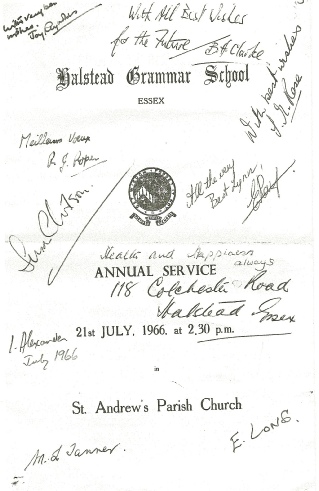 With very best
wishes.
With All Best Wishes
for the Future
Halstead Grammar School
ESSEX
With best wishes
Meilleurs Voeux
All the very
Best Lynn,
Health and Happiness
always
ANNUAL SERVICE
118 Colchester Road
Halstead Essex
I. Alexander
July 1966
21st JULY, 1966, at 2.30 p.m.
in
St. Andrew's Parish Church
M. L. Tanner.
E. LONG.